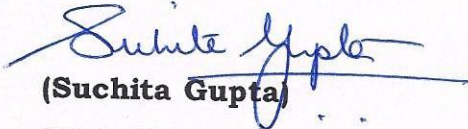 Suchita Gupta
(Suchita Gupta)